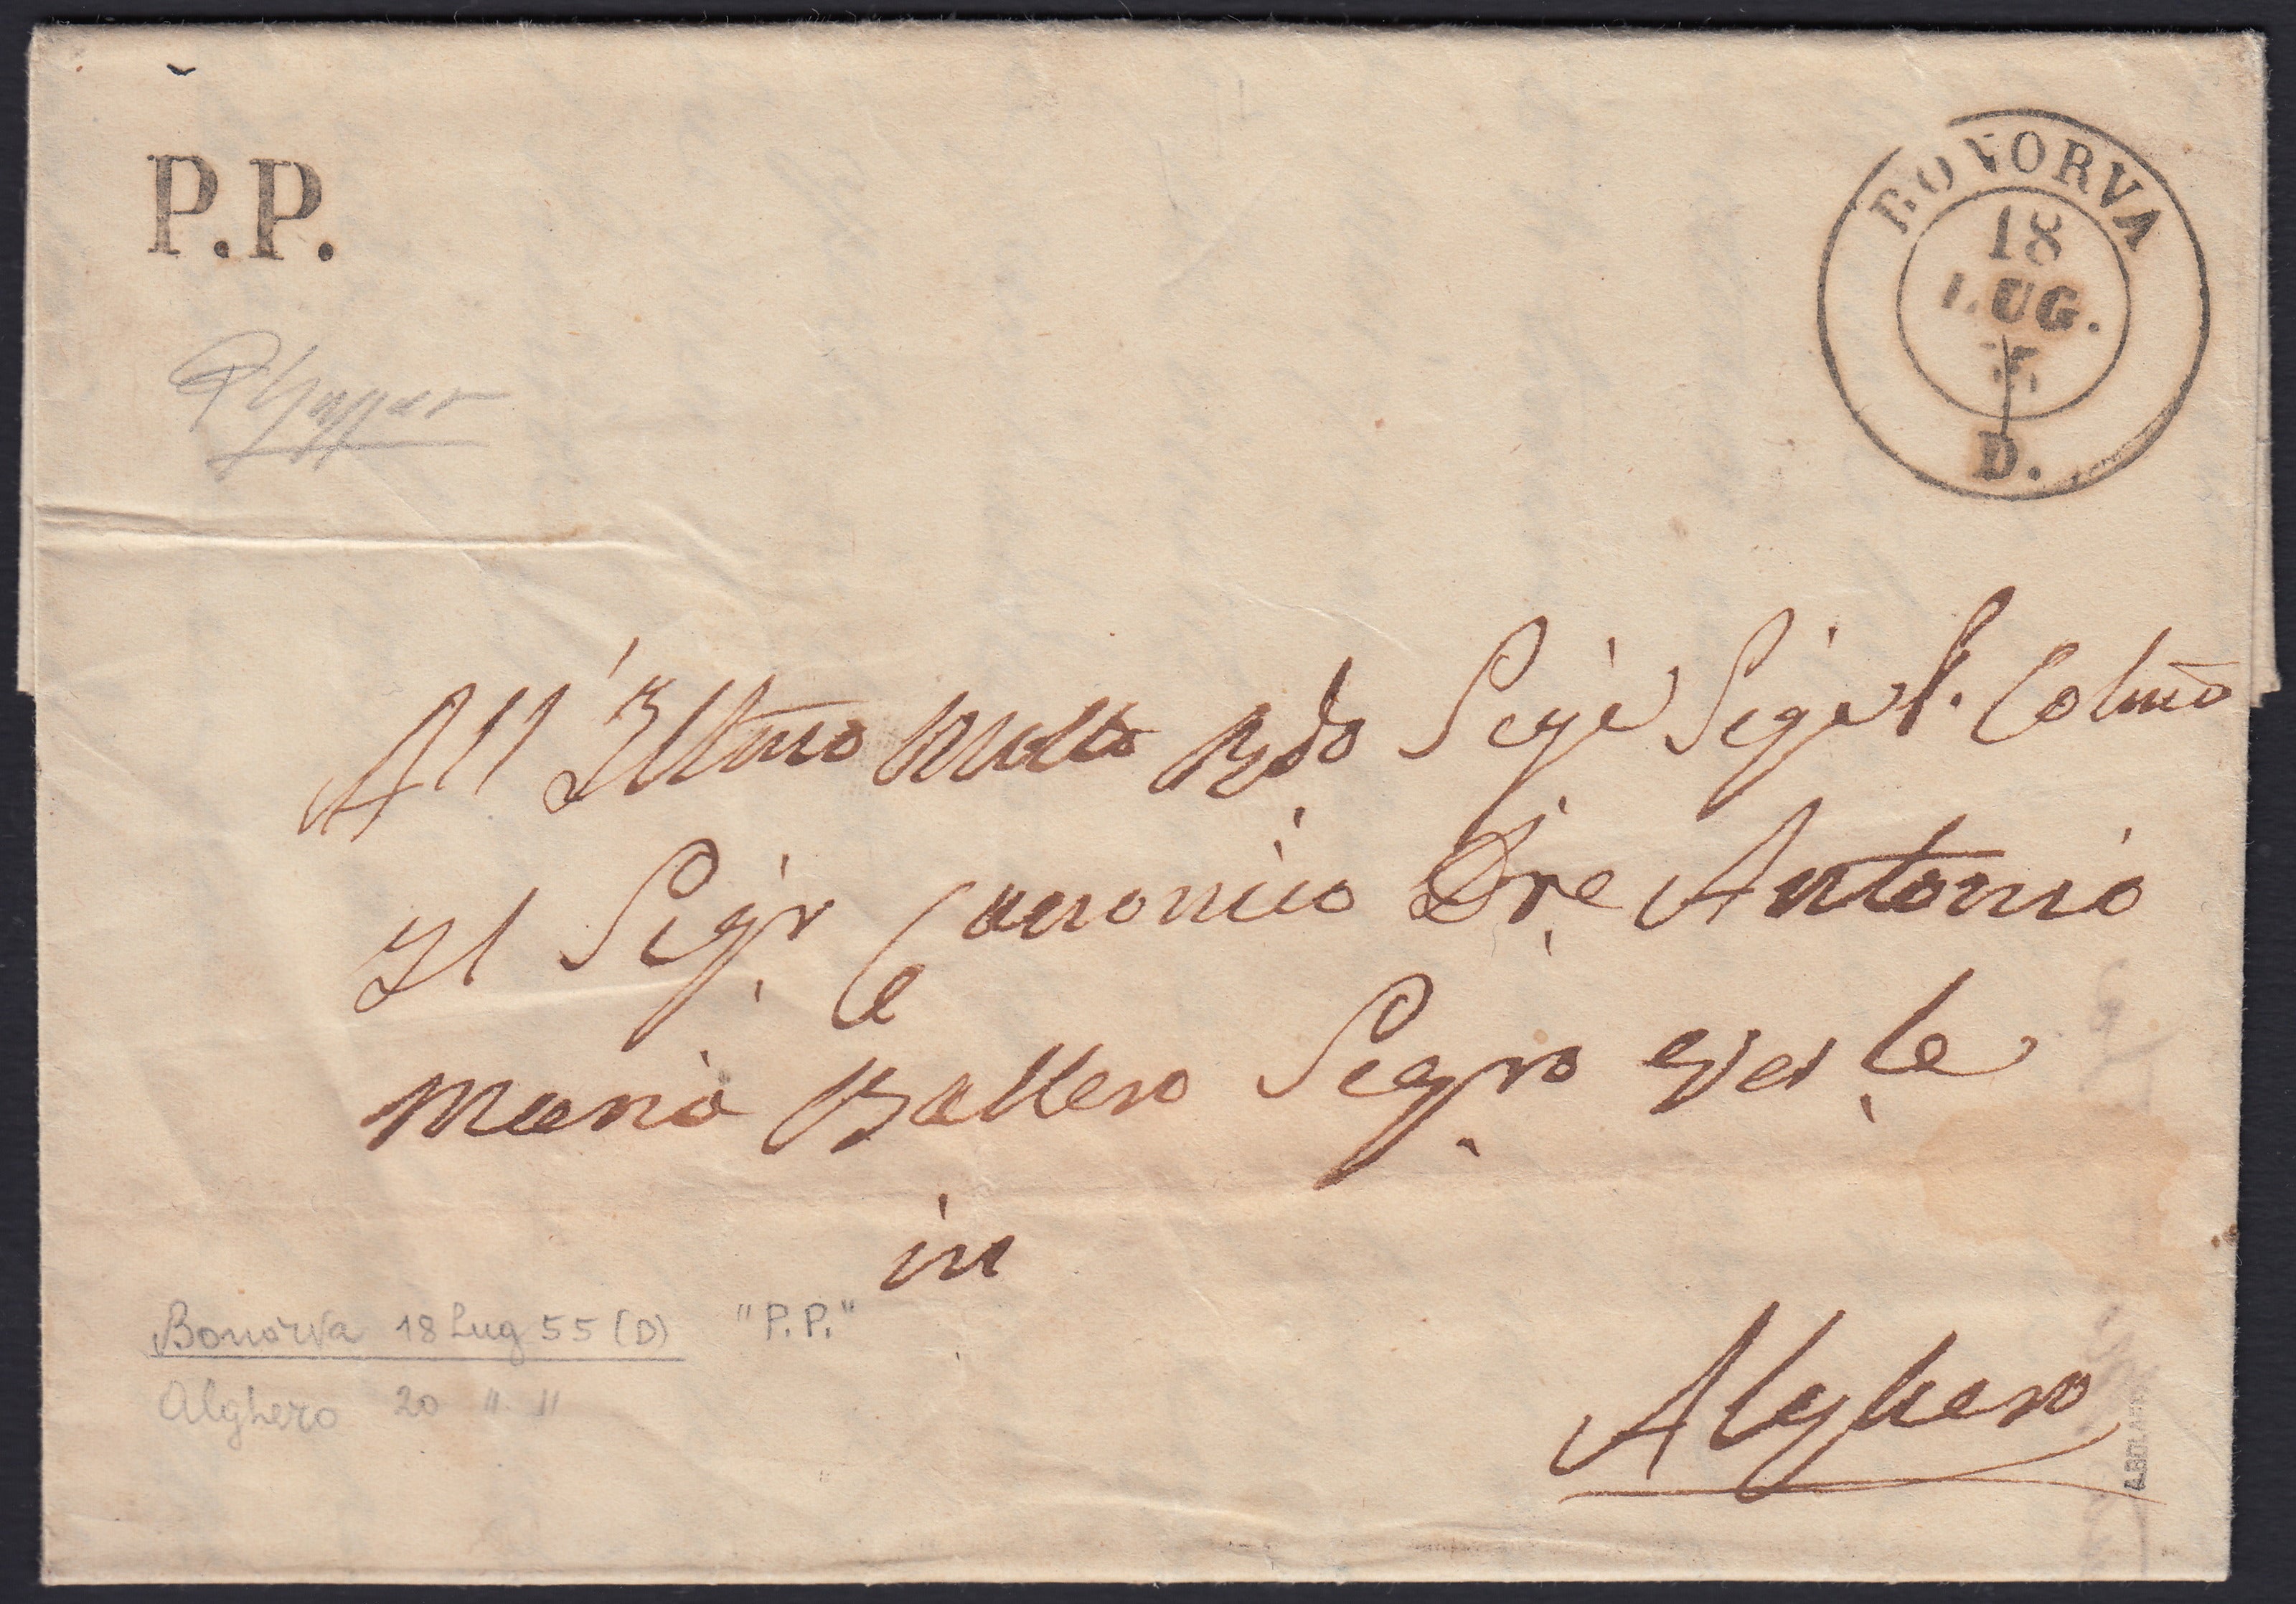 P.P.
BONORVA
18
LUG.
D.
All' Illmo Molto Rdo Sigr Sigr P. Colmo
Il Sigr Canonico Dre Antonio
Maria Ballero Segro Vesle
in
Alghero
Bonorva 18 Lug 55 (D) "P.P."
Alghero 20 " "